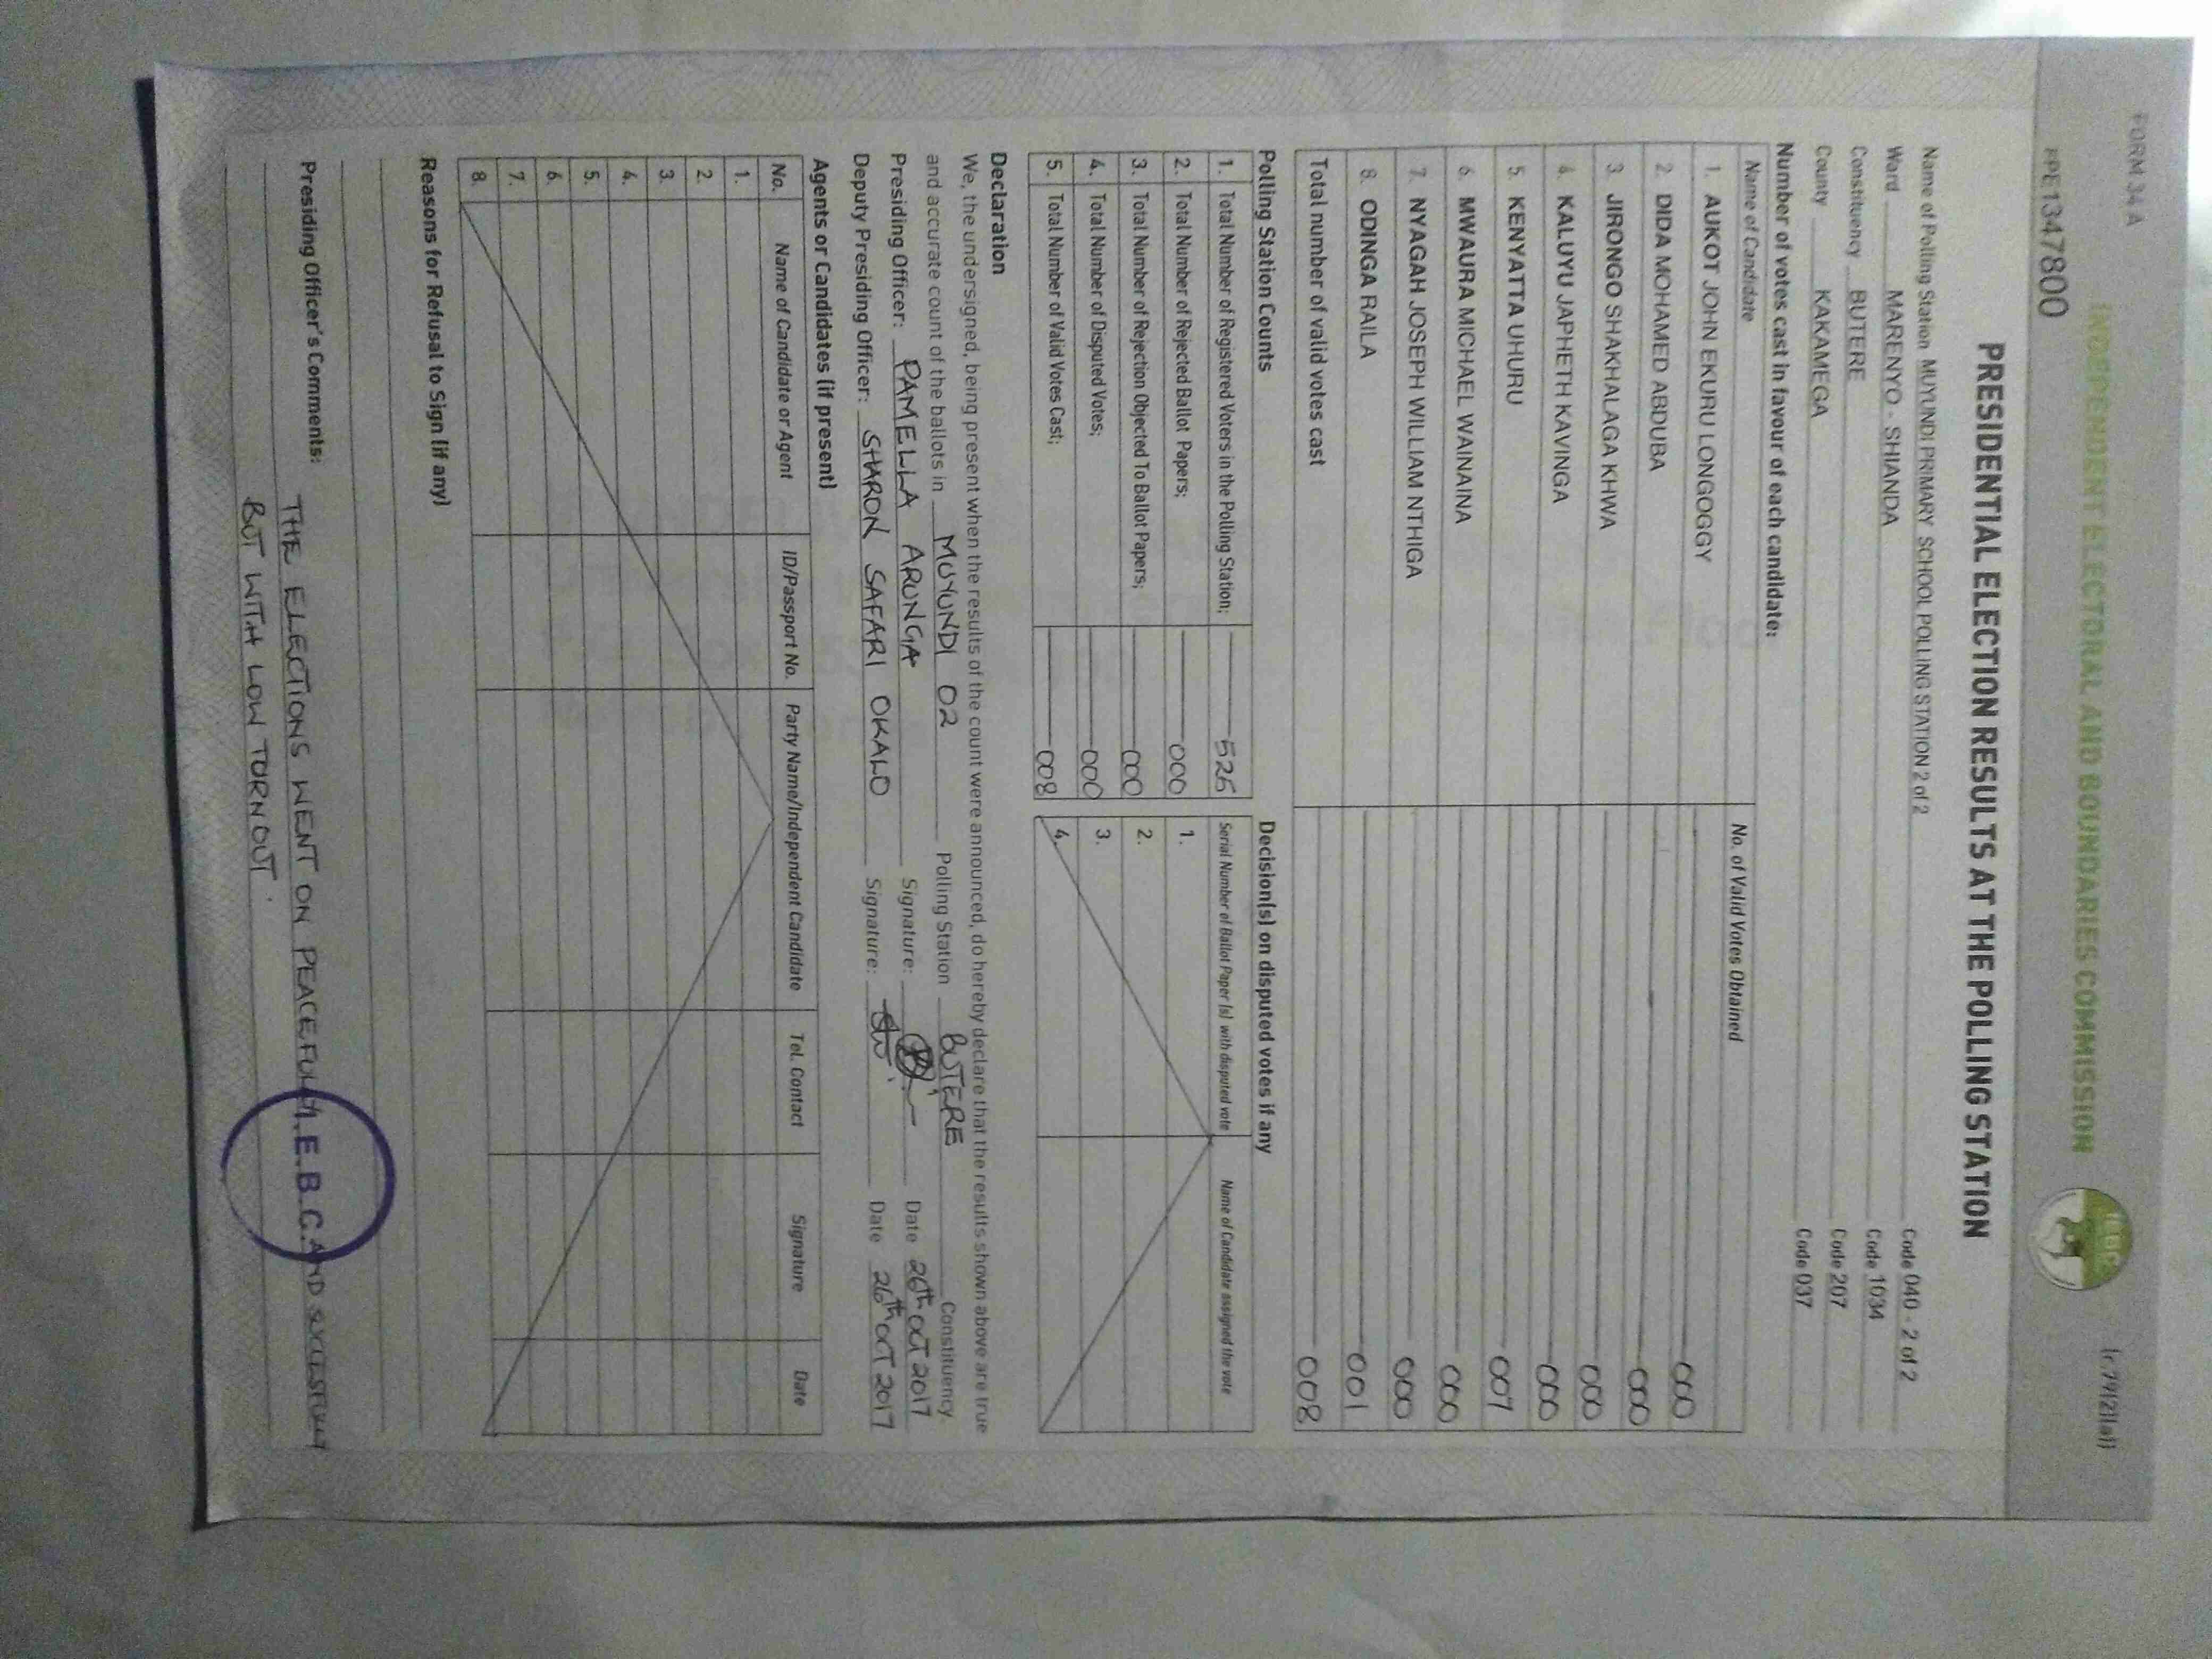 FORM 34 A
(r.79(2)(a))
INDEPENDENT ELECTORAL AND BOUNDARIES COMMISSION
IEBC
PPE1347800
PRESIDENTIAL ELECTION RESULTS AT THE POLLING STATION
Name of Polling Station MUYUNDI PRIMARY SCHOOL POLLING STATION 2 of 2 Code 040 - 2 of 2
Ward MARENYO - SHIANDA Code 1034
Constituency BUTERE Code 207
County KAKAMEGA Code 037
Number of votes cast in favour of each candidate:
Name of Candidate No. of Valid Votes Obtained
1. AUKOT JOHN EKURU LONGOGGY 000
2. DIDA MOHAMED ABDUBA 000
3. JIRONGO SHAKHALAGA KHWA 000
4. KALUYU JAPHETH KAVINGA 000
5. KENYATTA UHURU 007
6. MWAURA MICHAEL WAINAINA 000
7. NYAGAH JOSEPH WILLIAM NTHIGA 000
8. ODINGA RAILA 001
Total number of valid votes cast 008
Polling Station Counts
1. Total Number of Registered Voters in the Polling Station; 526
2. Total Number of Rejected Ballot Papers; 000
3. Total Number of Rejection Objected To Ballot Papers; 000
4. Total Number of Disputed Votes; 000
5. Total Number of Valid Votes Cast; 008
Decision(s) on disputed votes if any
Serial Number of Ballot Paper (s) with disputed vote Name of Candidate assigned the vote
1.
2.
3.
4.
Declaration
We, the undersigned, being present when the results of the count were announced, do hereby declare that the results shown above are true
and accurate count of the ballots in MUYUNDI 02 Polling Station BUTERE Constituency
Presiding Officer: PAMELLA ARUNGA Signature: Date 26th OCT 2017
Deputy Presiding Officer: SHARON SAFARI OKALO Signature: Date 26th OCT 2017
Agents or Candidates (if present)
No. Name of Candidate or Agent ID/Passport No. Party Name/Independent Candidate Tel. Contact Signature Date
1.
2.
3.
4.
5.
6.
7.
8.
Reasons for Refusal to Sign (if any)
Presiding Officer's Comments: THE ELECTIONS WENT ON PEACEFULLY AND SUCCESSFULLY
I.E.B.C.
BUT WITH LOW TORNOUT.